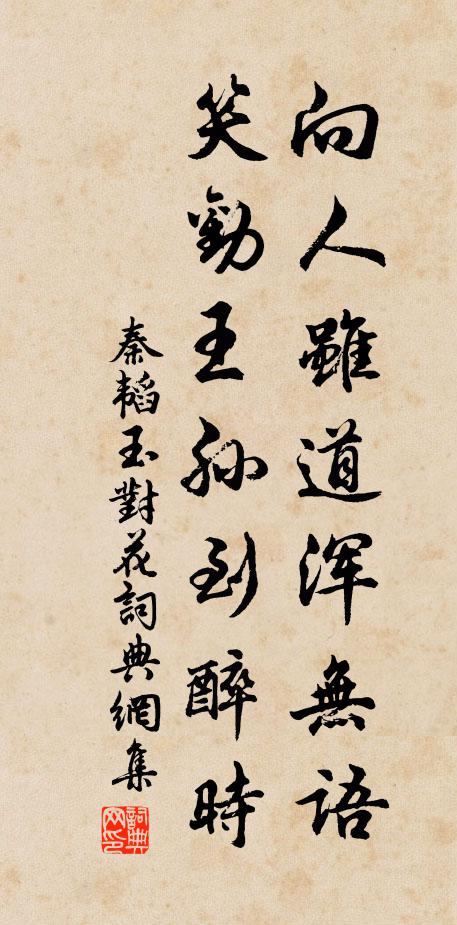 向人雖道渾無語
笑勸王孫到醉時
秦韜玉對花詞典網集
詞典網印